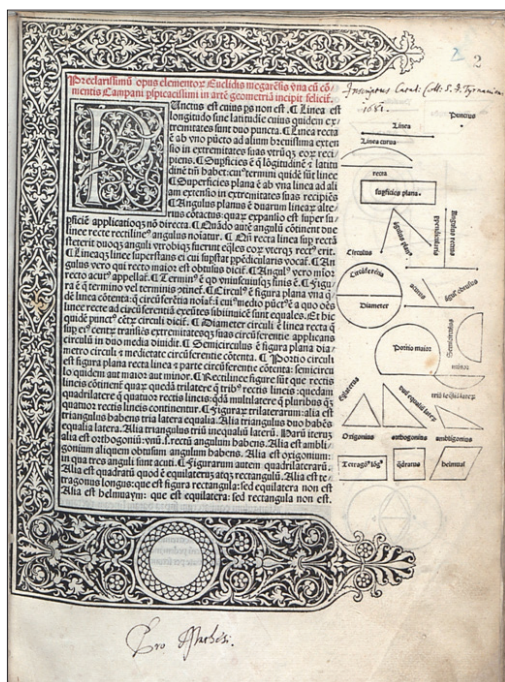 2
Preclarissimũ opus elementoꝝ Euclidis megarẽsis vna cũ cõ-
mentis Campani pspicacissimi in artẽ geometriã incipit felicit̃.
PUnctus est cuius ps non est. ¶ Linea est
longitudo sine latitudine cuius quidem ex/
tremitates sunt duo puncta. ¶ Linea recta
ẽ ab vno pũcto ad alium breuissima exten
sio in extremitates suas vtrũqꝫ eoꝝ reci
piens. ¶ Supficies ẽ q̃ lõgitudinẽ ⁊ latitu
dinẽ tm̃ habet: cuiꝰ termini quidẽ sũt linee
¶ Superficies plana ẽ ab vna linea ad ali
am extensio in extremitates suas recipiẽs
¶ Angulus planus ẽ duarum linearꝝ alte/
rius cõtactus: quaꝝ expansio est super su/
pficiẽ applicatioqꝫ nõ directa. ¶ Quãdo autẽ angulũ cõtinent due
linee recte rectilineꝰ angulus noĩatur. ¶ Qñ recta linea sup rectã
steterit duoqꝫ anguli vtrobiqꝫ fuerint eq̃les eoꝝ vterqꝫ rectꝰ erit.
¶ Lineaqꝫ linee superstans ei cui supstat ppẽdicularis vocat̃. ¶ An
gulus vero qui recto maior est obtusus dicit̃. ¶ Angulꝰ vero mĩor
recto acutꝰ appellat̃. ¶ Terminꝰ ẽ qđ vniuscuiusqꝫ finis ẽ. ¶ Figu/
ra ẽ q̃ termino vel terminis ptinet̃. ¶ Circulꝰ ẽ figura plana vna q̃
dẽ linea cõtenta: q̃ circũferẽtia noĩat̃: ĩ cuiꝰ medio pũctꝰ ẽ a quo oẽs
linee recte ad circũferentiã exeũtes sibiĩuicẽ sunt equales. Et hic
quidẽ punctꝰ cẽtꝝ circuli dicit̃. ¶ Diameter circuli ẽ linea recta q̃
sup eiꝰ centꝝ trãsiẽs extremitatesqꝫ suas circũferẽtie applicans
circulũ in duo media diuidit. ¶ Semicirculus ẽ figura plana dia/
metro circuli ⁊ medietate circũferentie cõtenta. ¶ Portio circuli
est figura plana recta linea ⁊ parte circũferẽtie cõtenta: semicircu
lo quidem aut maior aut minor. ¶ Rectilinee figure sũt que rectis
lineis cõtinent̃ quaꝝ quedã trilatere q̃ tribꝰ rectis lineis: quedam
quadrilatere q̃ quatuor rectis lineis: q̃dã multilatere q̃ pluribus q̃ꝫ
quatuor rectis lineis continentur. ¶ Figuraꝝ trilaterarum: alia est
triangulus habens tria latera equalia. Alia triangulus duo habẽs
equalia latera. Alia triangulus triũ inequaliũ laterũ. Harũ iteruꝫ
alia est orthogoniũ: vnũ .s. rectũ angulum habens. Alia est ambli/
gonium aliquem obtusum angulum habens. Alia est oxigonium:
in qua tres anguli sunt acuti. ¶ Figurarum autem quadrilaterarũ.
Alia est quadratũ quod ẽ equilaterũ atqꝫ rectangulũ. Alia est te/
tragonus longus: que est figura rectangula: sed equilatera non est
Alia est helmuaym: que est equilatera: sed rectangula non est.
Punctus
Linea
Linea curua
recta
supficies plana.
angulꝰ planꝰ
ppendicularis
Angulus rectus
Circulus
Circũferẽtia
Diameter
acutus
angꝰ obtusus
Portio maior
Semicirculus
minor
eq̃laterus
duũ equaliũ laterũ
triũ ĩeq̃liũ laterũ
Oxigonius
orthogonius
ambligonius
Tetragonꝰ lõgꝰ
q̃dratus
helmuaí